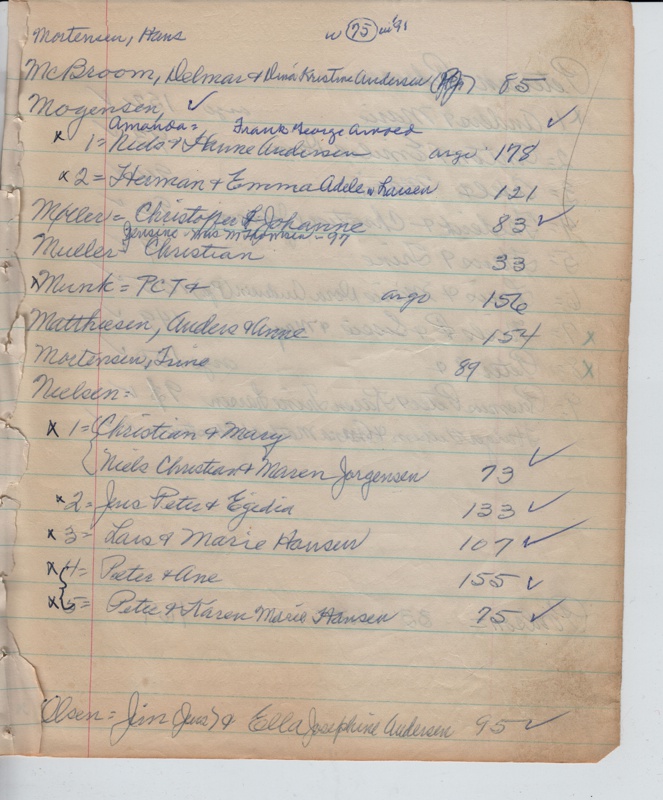 Mortensen, Hans w 75
McBroom, Delmar & Dina Kristine Andersen 85
Mogensen ✓
Amanda = Frank George Arnold ✓
x 1 = Niels & Hanne Andersen argo 178
x 2 = Herman & Emma Adele Larsen 121
Moller = Christopher & Johanne 83 ✓
Jensine Mrs M Thomsen - 97
Mueller Christian 33
x Munk = PCT & argo 156
Matthiesen, Anders & Anne 154
Mortensen, Trine 89
Nielsen =
x 1 = { Christian & Mary
Niels Christian & Maren Jorgensen 73 ✓
x 2 = Jens Peter & Egedia 133 ✓
x 3 = Lars & Marie Hansen 107 ✓
x 4 = Peter & Ane 155 ✓
x 5 = Peter & Karen Marie Hansen 75 ✓
Olsen = Jim (Jens) & Ella Josephine Andersen 95 ✓